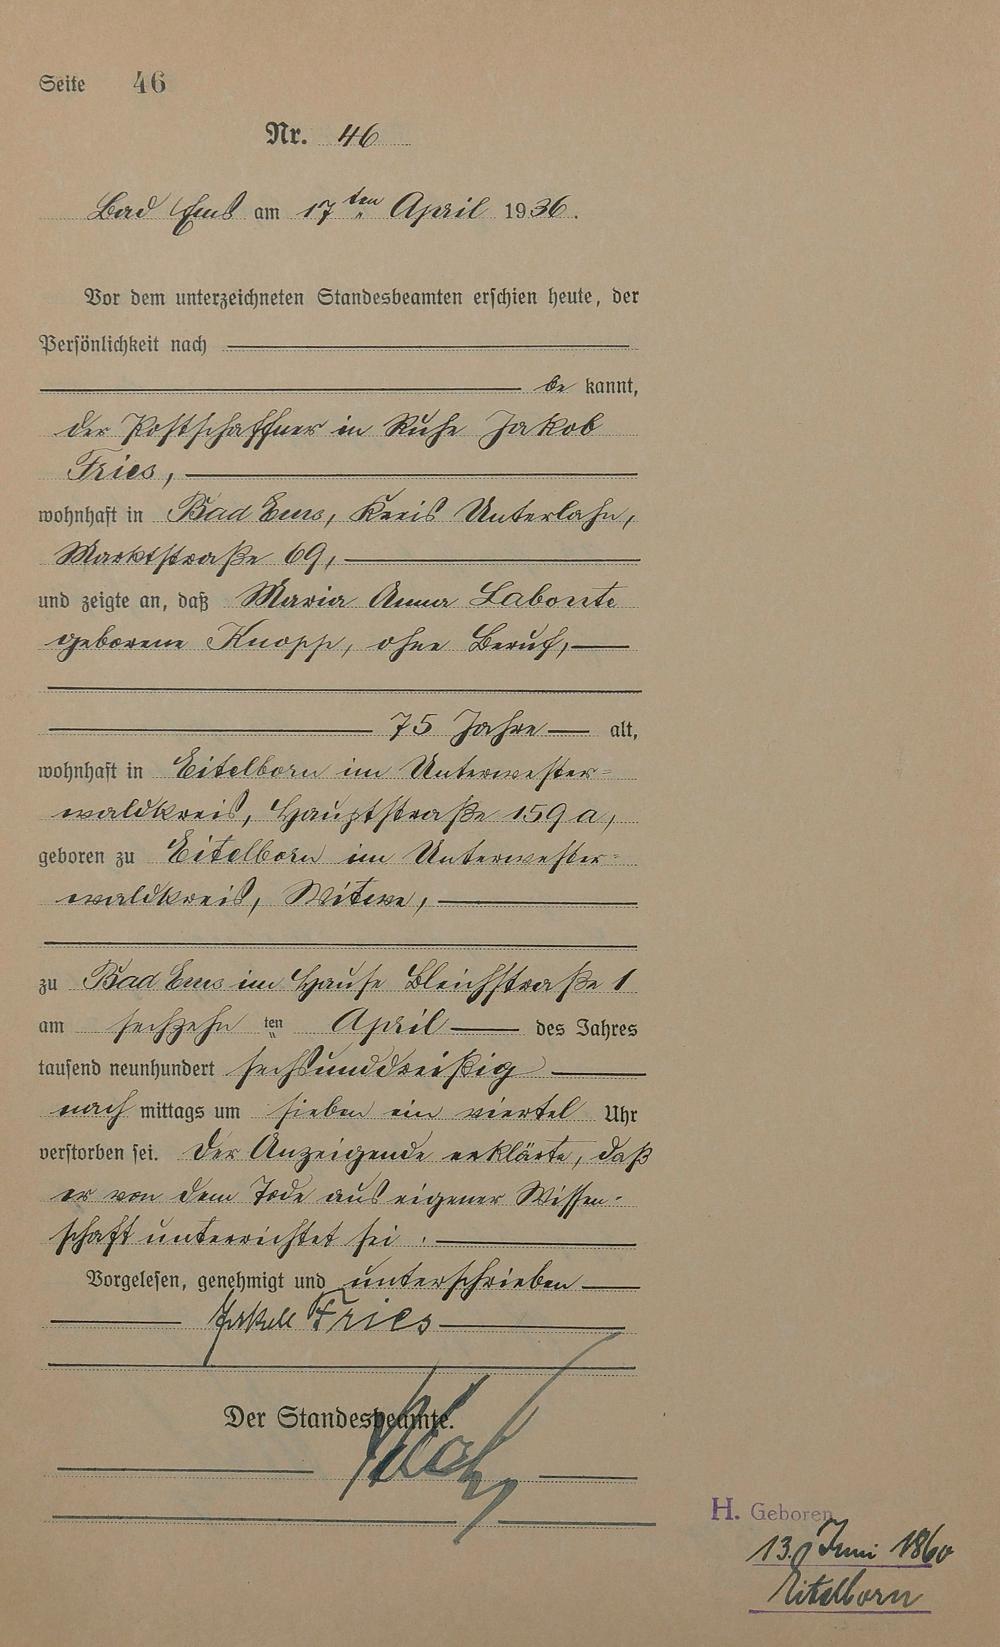 Seite 46
Nr. 46
Bad Ems am 17ten April 1936.
Vor dem unterzeichneten Standesbeamten erschien heute, der
Persönlichkeit nach
be kannt,
der Postschaffner in Ruhe Jakob
Fries,
wohnhaft in Bad Ems, Kreis Unterlahn,
Marktstraße 69,
und zeigte an, daß Maria Anna Labonte
geborene Knopp, ohne Beruf,
75 Jahre alt,
wohnhaft in Eitelborn im Unterwester=
waldkreis, Hauptstraße 159 a,
geboren zu Eitelborn im Unterwester=
waldkreis, Witwe,
zu Bad Ems im Hause Bleichstraße 1
am sechzehn ten April des Jahres
tausend neunhundert sechsunddreißig
nach mittags um sieben ein viertel Uhr
verstorben sei. Der Anzeigende erklärte, daß
er von dem Tode aus eigener Wissen-
schaft unterrichtet sei.
Vorgelesen, genehmigt und unterschrieben
Jakob Fries
Der Standesbeamte.
H. Geboren
13. Juni 1860
Eitelborn